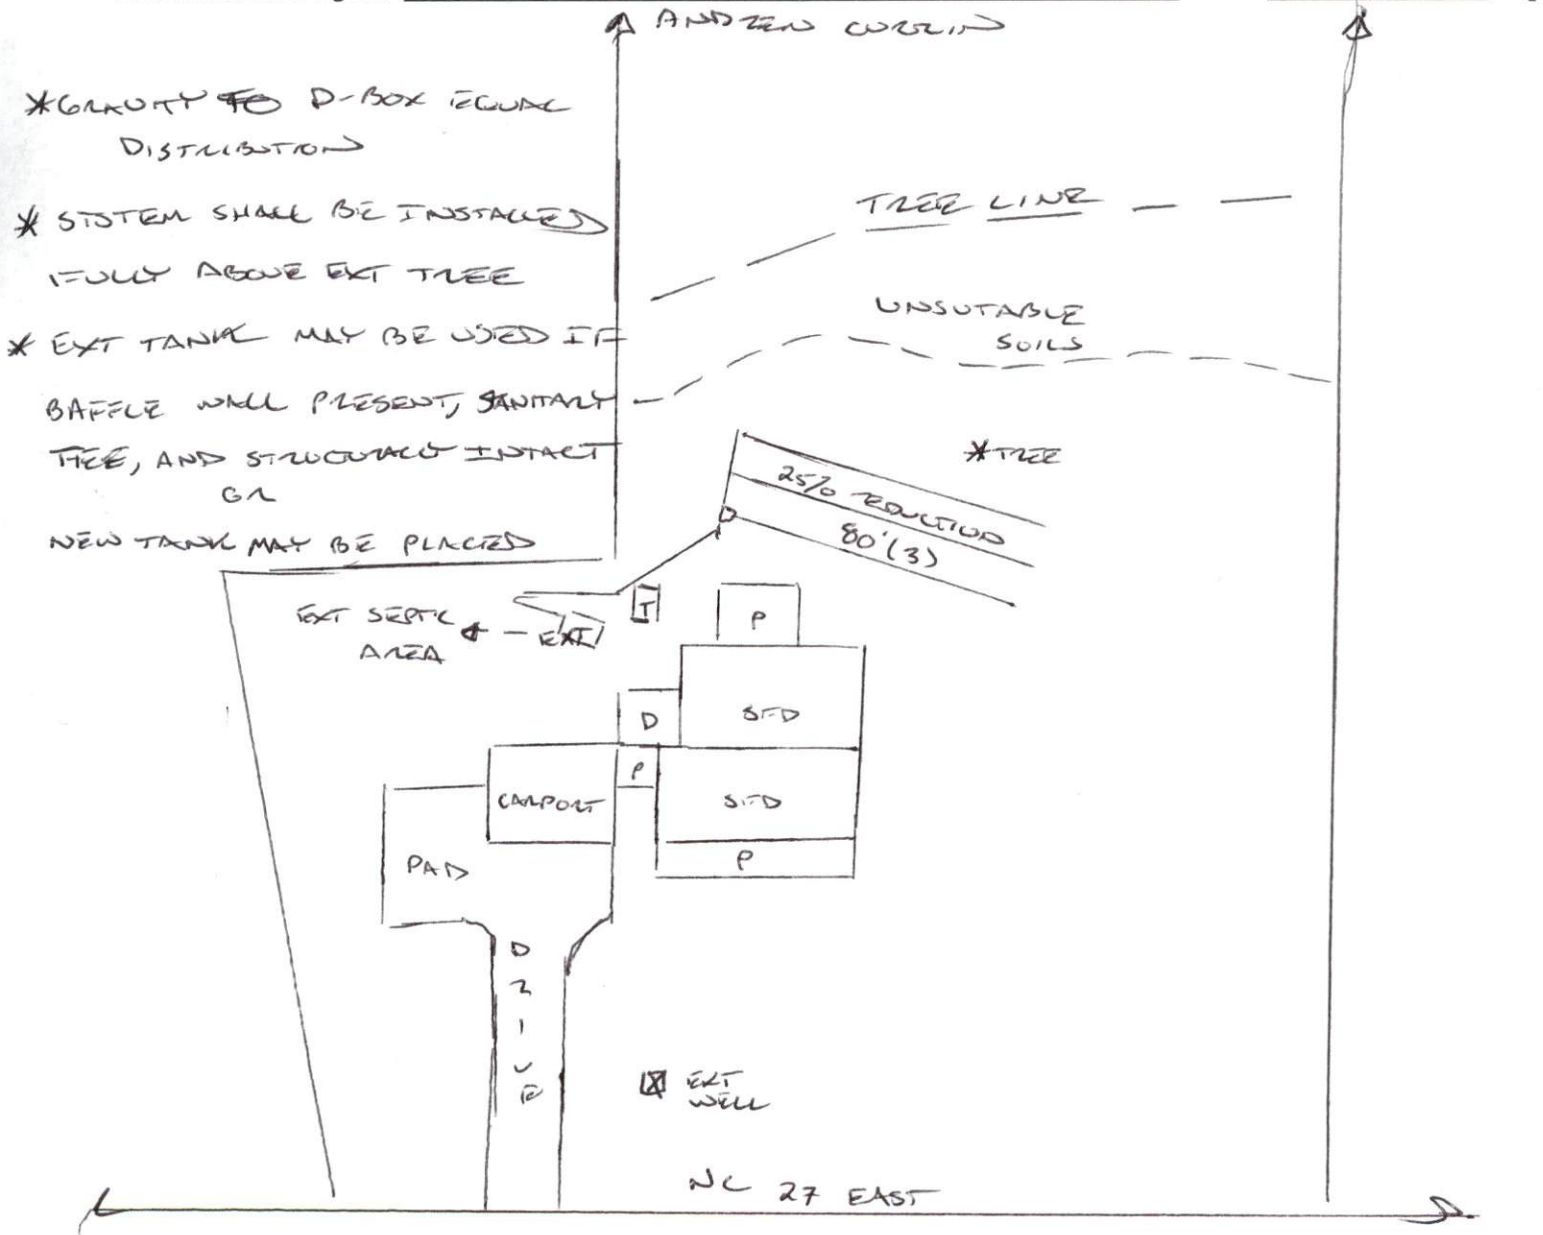 ANDREW CURRIN
*GRAVITY TO D-BOX EQUAL
DISTRIBUTION
* SYSTEM SHALL BE INSTALLED
FULLY ABOVE EXT TREE
* EXT TANK MAY BE USED IF
BAFFLE WALL PRESENT, SANITARY
TEE, AND STRUCTURALLY INTACT
OR
NEW TANK MAY BE PLACED
TREE LINE
UNSUTABLE
SOILS
*TREE
25% REDUCTION
80'(3)
D
T
EXT SEPTIC
AREA
EXT
P
D
SFD
P
CARPORT
SFD
PAD
P
DRIVE
EXT
WELL
NC 27 EAST